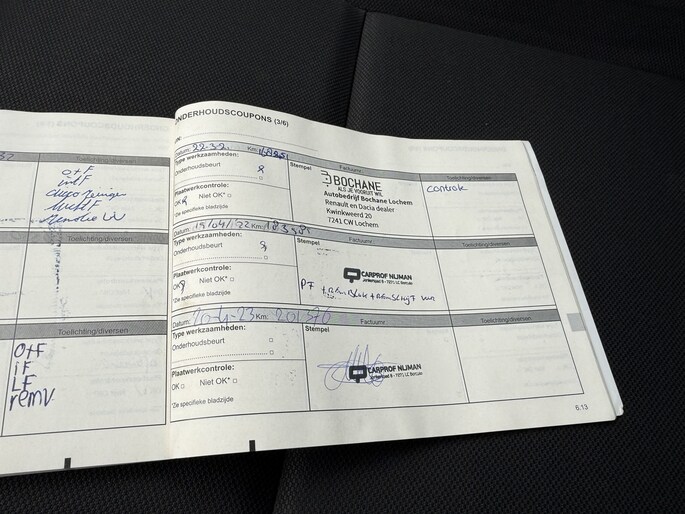 Toelichting/diversen
o+F
intF
luchtF
Toelichting/diversen
Toelichting/diversen
O+F
iF
LF
remv.
ONDERHOUDSCOUPONS (3/6)
Datum: 22-3-2. Km:
Type werkzaamheden:
Onderhoudsbeurt
Plaatwerkcontrole:
OK Niet OK*
*Zie specifieke bladzijde
Stempel
Factuurnr.
BOCHANE
ALS JE VOORUIT WIL
Autobedrijf Bochane Lochem
Renault en Dacia dealer
Kwinkweerd 20
7241 CW Lochem
Toelichting/diversen
Controle
Datum: 19/04/22 Km:
Type werkzaamheden:
Onderhoudsbeurt
Plaatwerkcontrole:
OK Niet OK*
*Zie specifieke bladzijde
Stempel
Factuurnr.
CARPROF NIJMAN
PF
Toelichting/diversen
Datum: 20-4-23 Km: 201370
Type werkzaamheden:
Onderhoudsbeurt
Plaatwerkcontrole:
OK Niet OK*
*Zie specifieke bladzijde
Stempel
Factuurnr.
CARPROF NIJMAN
Toelichting/diversen
6.13